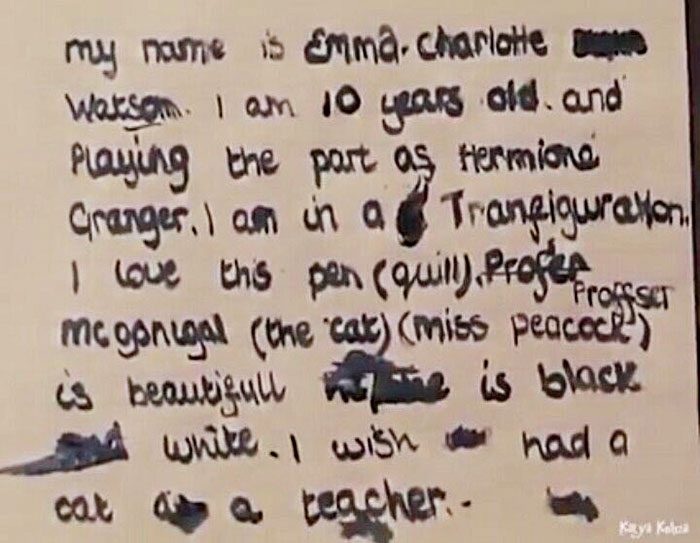 my name is Emma. Charlotte
Watson. I am 10 years old. and
Playing the part as Hermione
Granger. I am in a Tranfiguration.
I love this pen (quill).
Proffser
mcgonigal (the cat) (miss peacock)
is beautifull is black
white. I wish had a
cat a teacher.-
Katya Kolosa